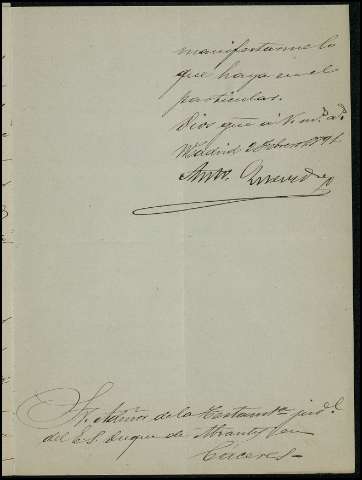 manifestarme lo
que haya en el
particular.
Dios gue á V. m.s a.s
Madrid 2 Febrero 1891
Anto. Quevedo
Sr. Admor de la Testamta jud.l
del E. S. Duque de Abrantes en
Cáceres